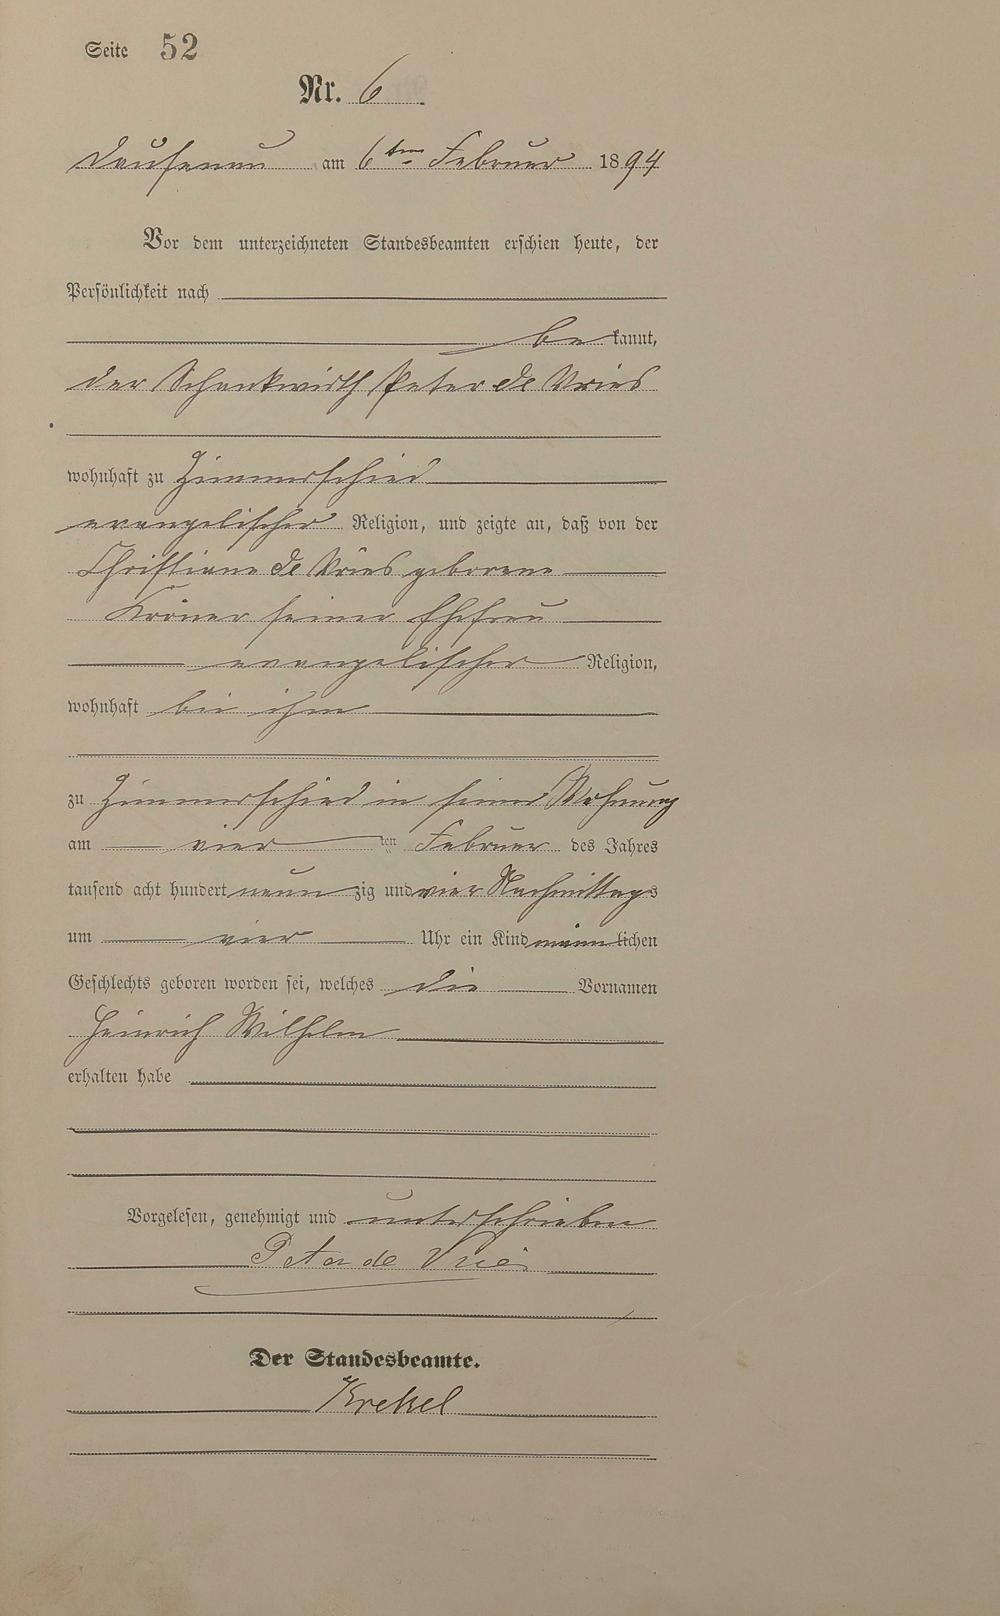 Seite 52
Nr. 6
Dausenau am 6ten Februar 1894
Vor dem unterzeichneten Standesbeamten erschien heute, der
Persönlichkeit nach
be kannt,
der Schankwirth Peter de Vries
wohnhaft zu Zimmerschied
evangelischer Religion, und zeigte an, daß von der
Christiane de Vries geborene
Kröner seiner Ehefrau
evangelischer Religion,
wohnhaft bei ihm
zu Zimmerschied in seiner Wohnung
am vier ten Februar des Jahres
tausend acht hundert neun zig und vier Nachmittags
um vier Uhr ein Kind männlichen
Geschlechts geboren worden sei, welches die Vornamen
Heinrich Wilhelm
erhalten habe
Vorgelesen, genehmigt und unterschrieben
Peter de Vries
Der Standesbeamte.
Krekel